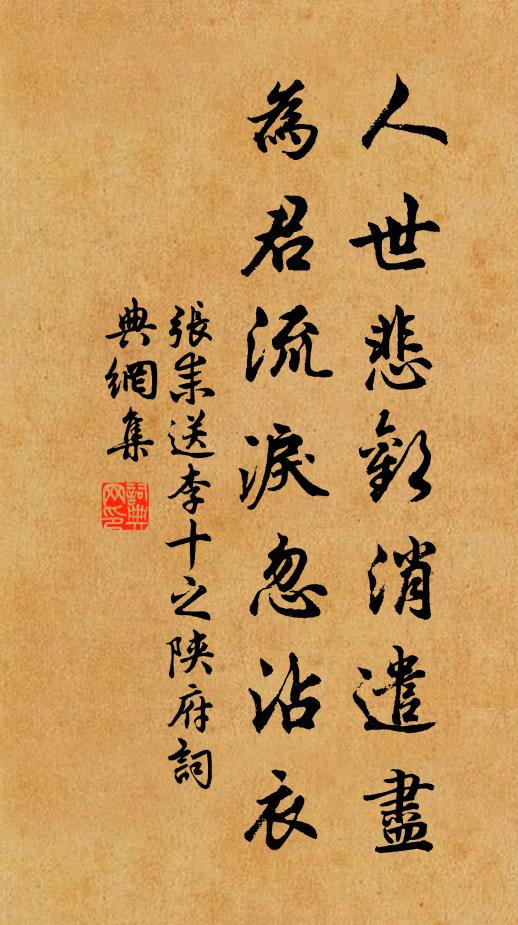 人世悲歡消遣盡
為君流淚忽沾衣
張耒送李十之陝府詞
典網集
詞典網印